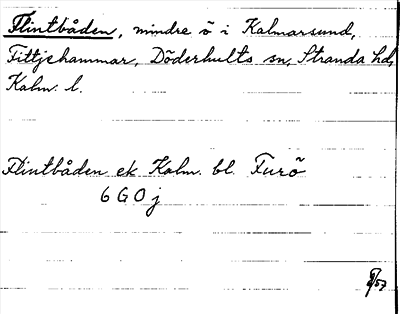 Flintbåden, mindre ö i Kalmarsund,
Fittjehammar, Döderhults sn, Stranda hd,
Kalm. l.
Flintbåden ek Kalm. bl. Furö
6 G 0 j